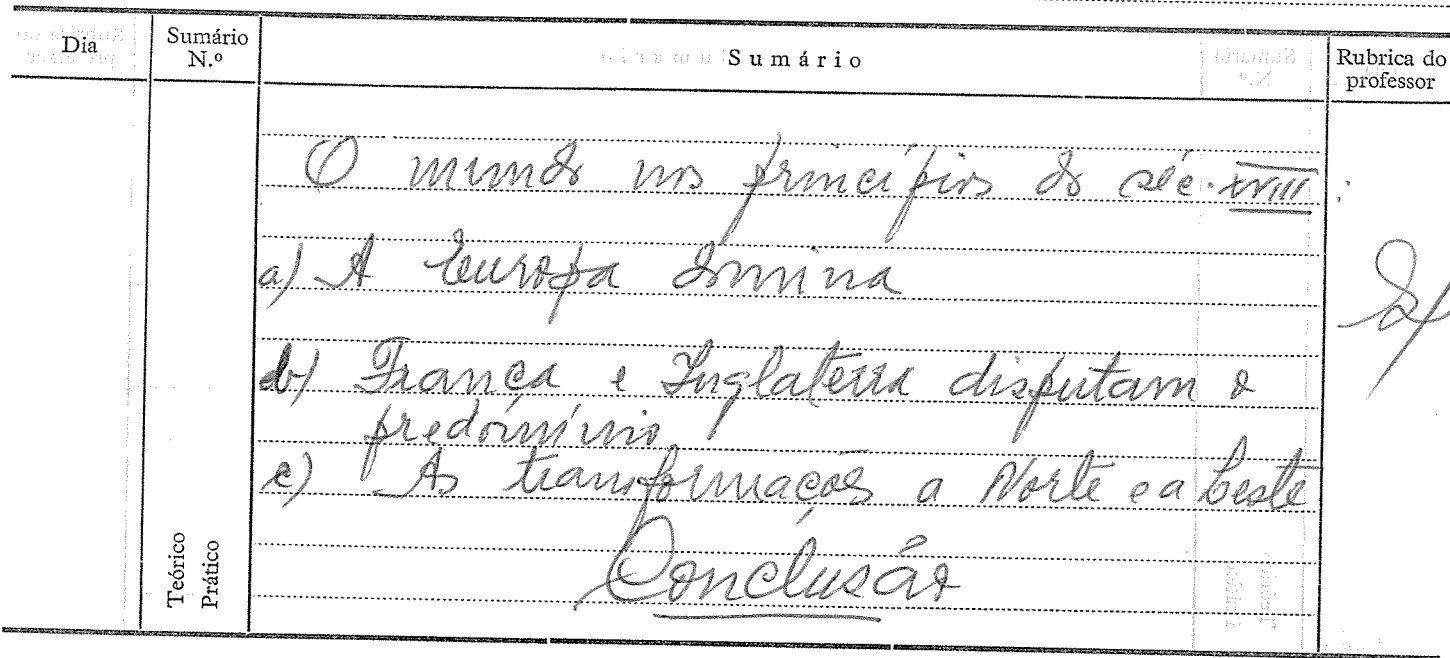 Dia
Sumário N.º
Sumário
Rubrica do professor
O mundo nos princípios do séc. XVIII.
a) A Europa domina
b) França e Inglaterra disputam o
predomínio
c) As transformações a Norte e a Leste
Conclusão
Teórico
Prático